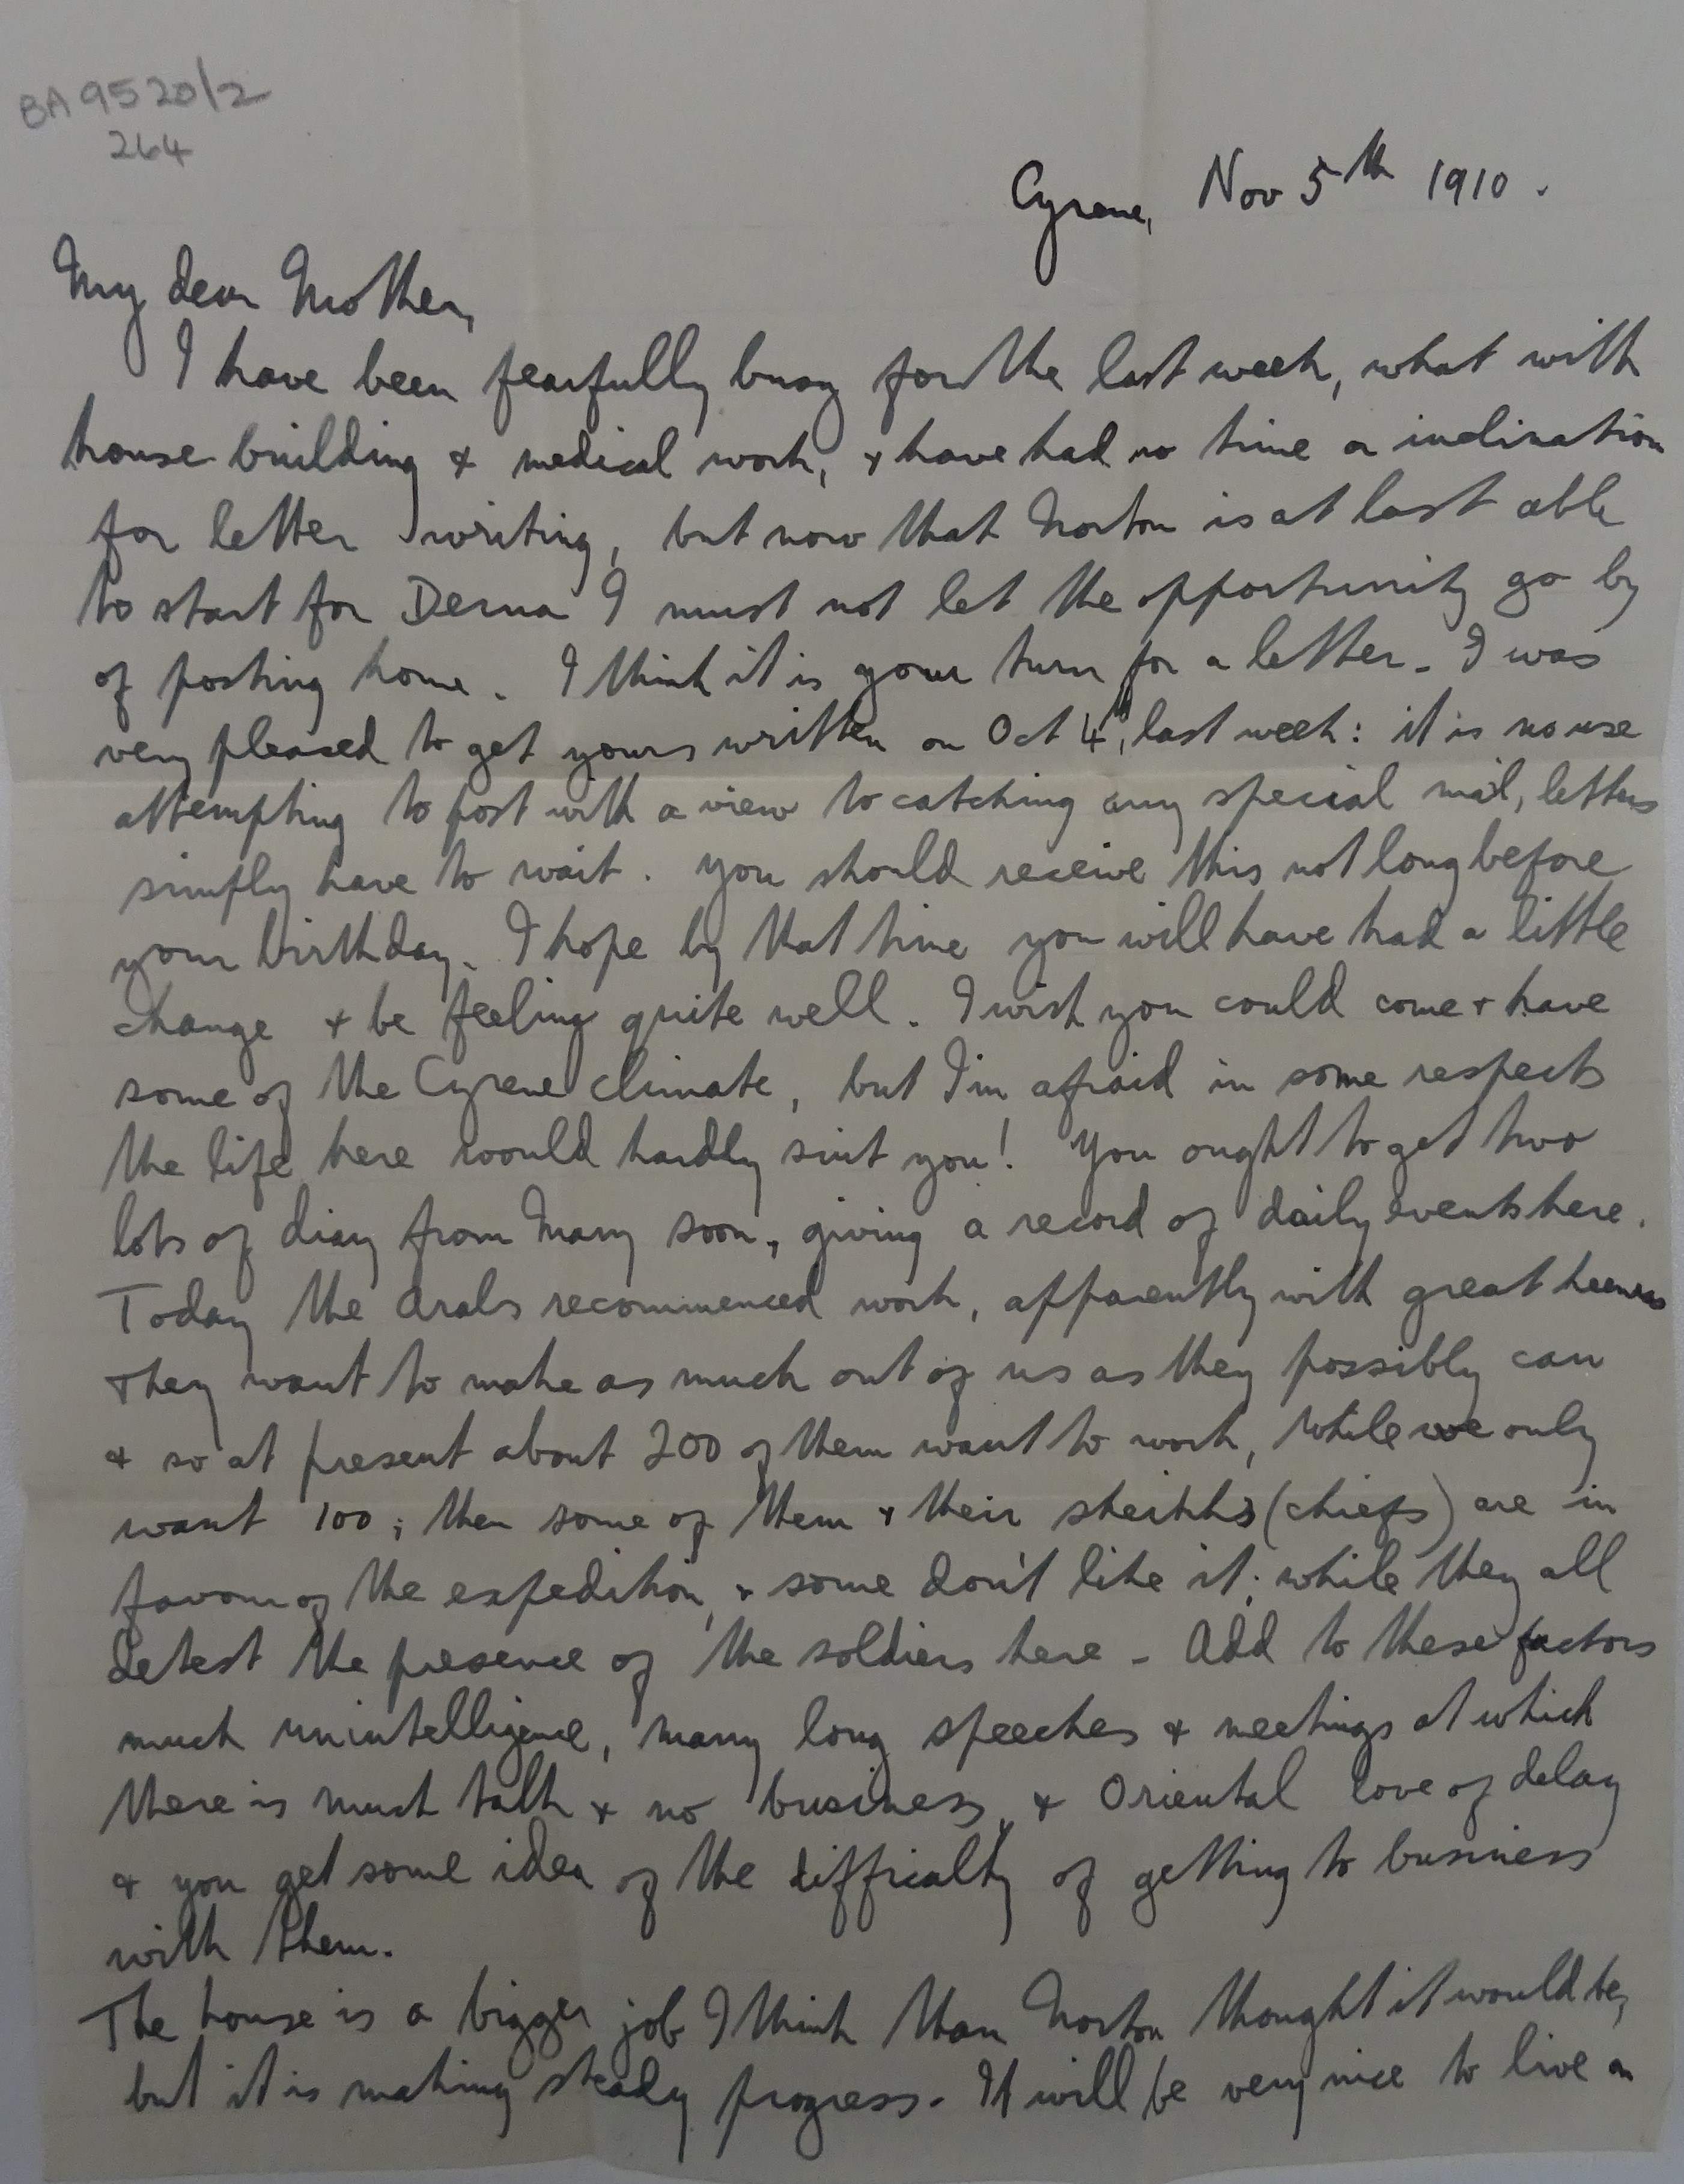 BA 9520/2
264
Cyrene, Nov 5th 1910.
My dear Mother,
I have been fearfully busy for the last week, what with
house building & medical work, & have had no time or inclination
for letter writing, but now that Norton is at last able
to start for Derna I must not let the opportunity go by
of posting home. I think it is your turn for a letter. I was
very pleased to get yours written on Oct 4th, last week: it is no use
attempting to post with a view to catching any special mail, letters
simply have to wait. You should receive this not long before
your birthday. I hope by that time you will have had a little
change & be feeling quite well. I wish you could come & have
some of the Cyrene climate, but I'm afraid in some respects
the life here would hardly suit you! You ought to get two
lots of diary from Mary soon, giving a record of daily events here.
Today the Arabs recommenced work, apparently with great keenness
They want to make as much out of us as they possibly can
& so at present about 200 of them want to work, while we only
want 100; then some of them & their sheikhs (chiefs) are in
favour of the expedition, & some don't like it; while they all
detest the presence of the soldiers here - Add to these factors
much unintelligence, many long speeches & meetings at which
there is much talk & no business, & Oriental love of delay
& you get some idea of the difficulty of getting to business
with them.
The house is a bigger job I think than Norton thought it would be,
but it is making steady progress. It will be very nice to live in